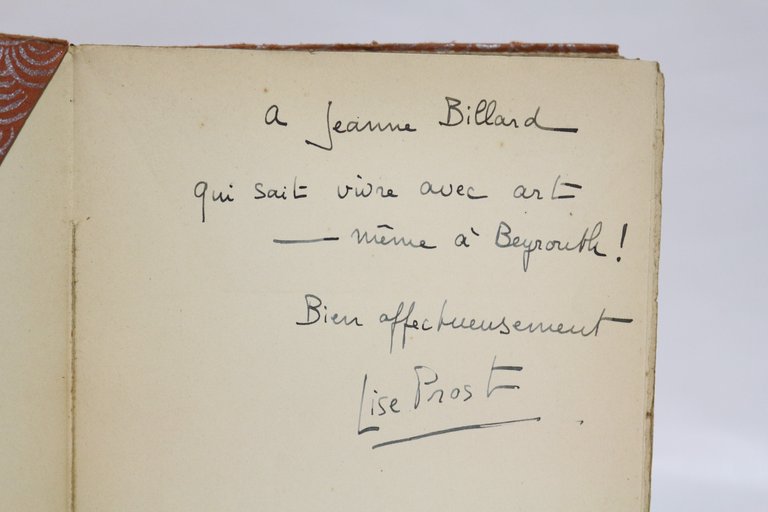 A Jeanne Billard
qui sait vivre avec art
— même à Beyrouth !
Bien affectueusement
Lise Prost